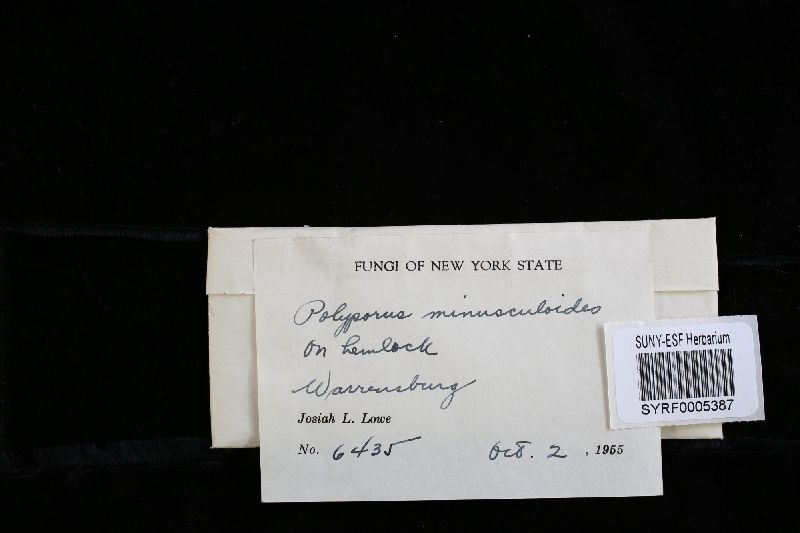 FUNGI OF NEW YORK STATE
Polyporus minusculoides
On hemlock
Warrensburg
Josiah L. Lowe
No. 6435 Oct. 2, 1955
SUNY-ESF Herbarium
SYRF0005387